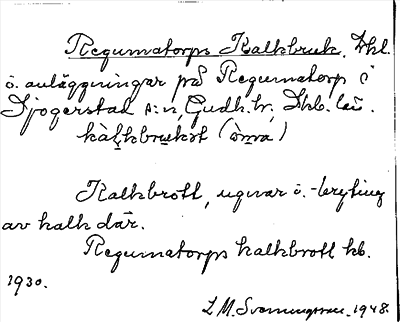 Regumatorps Kalkbruk. Skl.
ö. anläggningar på Regumatorp i
Sjogerstad s:n, Gudh. hr, Skb. län.
kàlkbrukət (òmra)
Kalkbrott, ugnar ö. -brytning
av kalk där.
Regumatorps kalkbrott kb.
1930.
L M. Svanungsson. 1948.